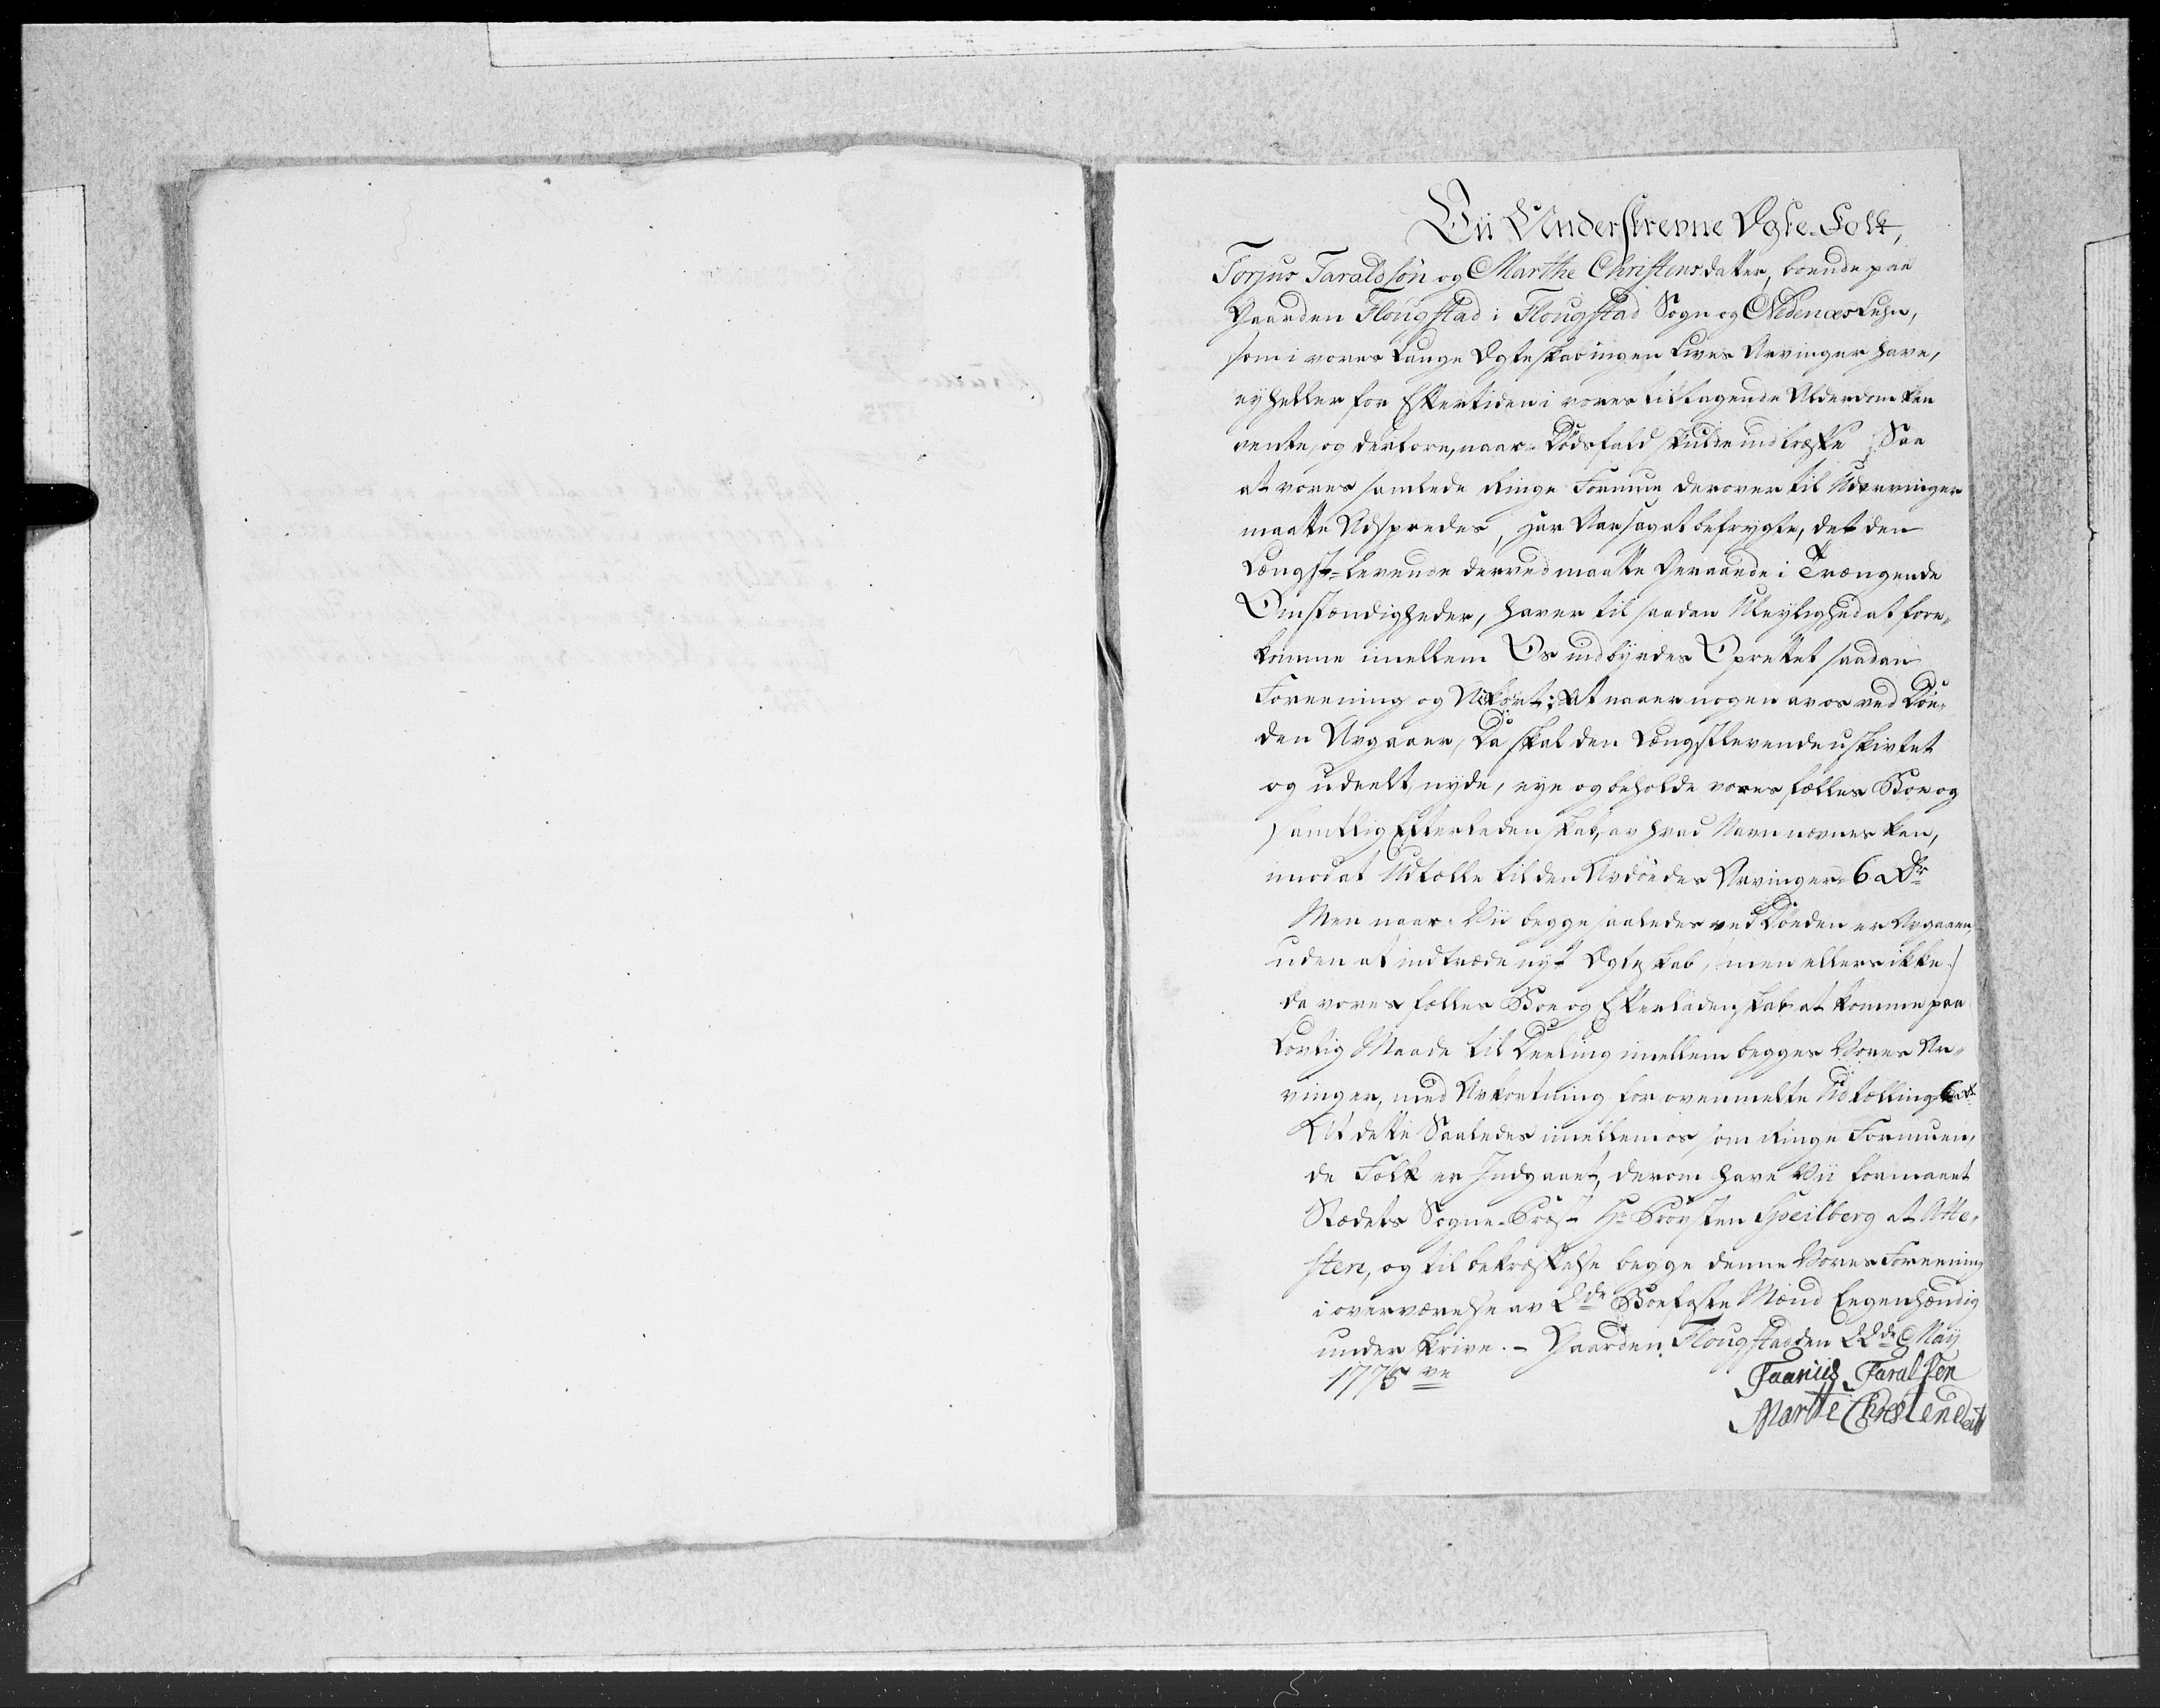 Vii Underskrevne Ægte-Folk,
Torjus Taraldsøn og Marthe Christensdatter, boende paa
Gaarden Flougstad i Flougstad Sogn og Nedenæs Lehn,
som i vores Lange Ægteskab ingen Lives Arvinger have,
ey heller for Eftertiden i vores tiltagende Alderdom kan
vente, og derfore, naar Dødsfald skulde indtræffe Saa
at vores samlede Ringe Formue derover til Udarvinger
maatte Udspredes, har Aarsag at befrygte, det den
Længst-levende derved maatte Geraade i Trængende
Omstændigheder, haver til saadan Uleylighed at fore-
komme imellem Os indbyrdes Oprettet saadan
Foreening og : At naar nogen av os ved Døe-
den Avgaaer, Da skal den Længstlevende uskivtet
og udeelt, nyde, eye og beholde vores fælles Boe og
samtlig Efterladenskab, av hvad Navn nævnes kan,
imod at Udtælle til den Avdødes Arvinger 6 Rdr
Men naar Vii begge saaledes ved Døeden er Avgaaen,
uden at indtræde nyt Ægteskab, men ellers ikke
da vores fælles Boe og Efterladenskab at komme paa
Lovlig Maade til Deeling imellem begges Vores Ar-
vinger, med Avkortning for ovenmelte Udtælling 6 Rdr
At dette Saaledes imellem os, som Ringe Formuen-
de Folk er Indgaaet, derom have Vii formaaet
Stædets Sogne-Præst Hr Provsten Speilberg at Atte-
stere, og til bekræftelse begge denne Vores Foreening
i overværelse av 2de Boefaste Mænd Eegenhændig
underskrive. - Gaarden Flougstad den 22de May
1775ve
Taarius Taralsen
Marthe Chrestendaatt